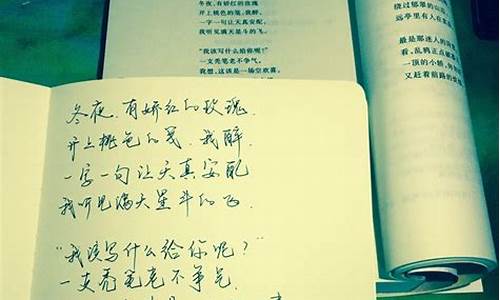 冬夜，有娇红的玫瑰
开上桃色的笺，我醉，
一字一句让天真安配，
我听见满天星斗的飞。
“我该写什么给你呢？”
一支秃笔老不争气。
我想，这该是一场空欢喜。
绕过郁翠的山
远亭里有人在
最是那迷人的
看，乱鸦正点破
一顶的小轿，
又赶着前路的
冬夜，有娇红的玫瑰
开上桃色的笺，我醉，
一字一句让天真安配
我听见满天星斗的飞.
“我该写什么给你呢？”
一支秃笔老不争气.